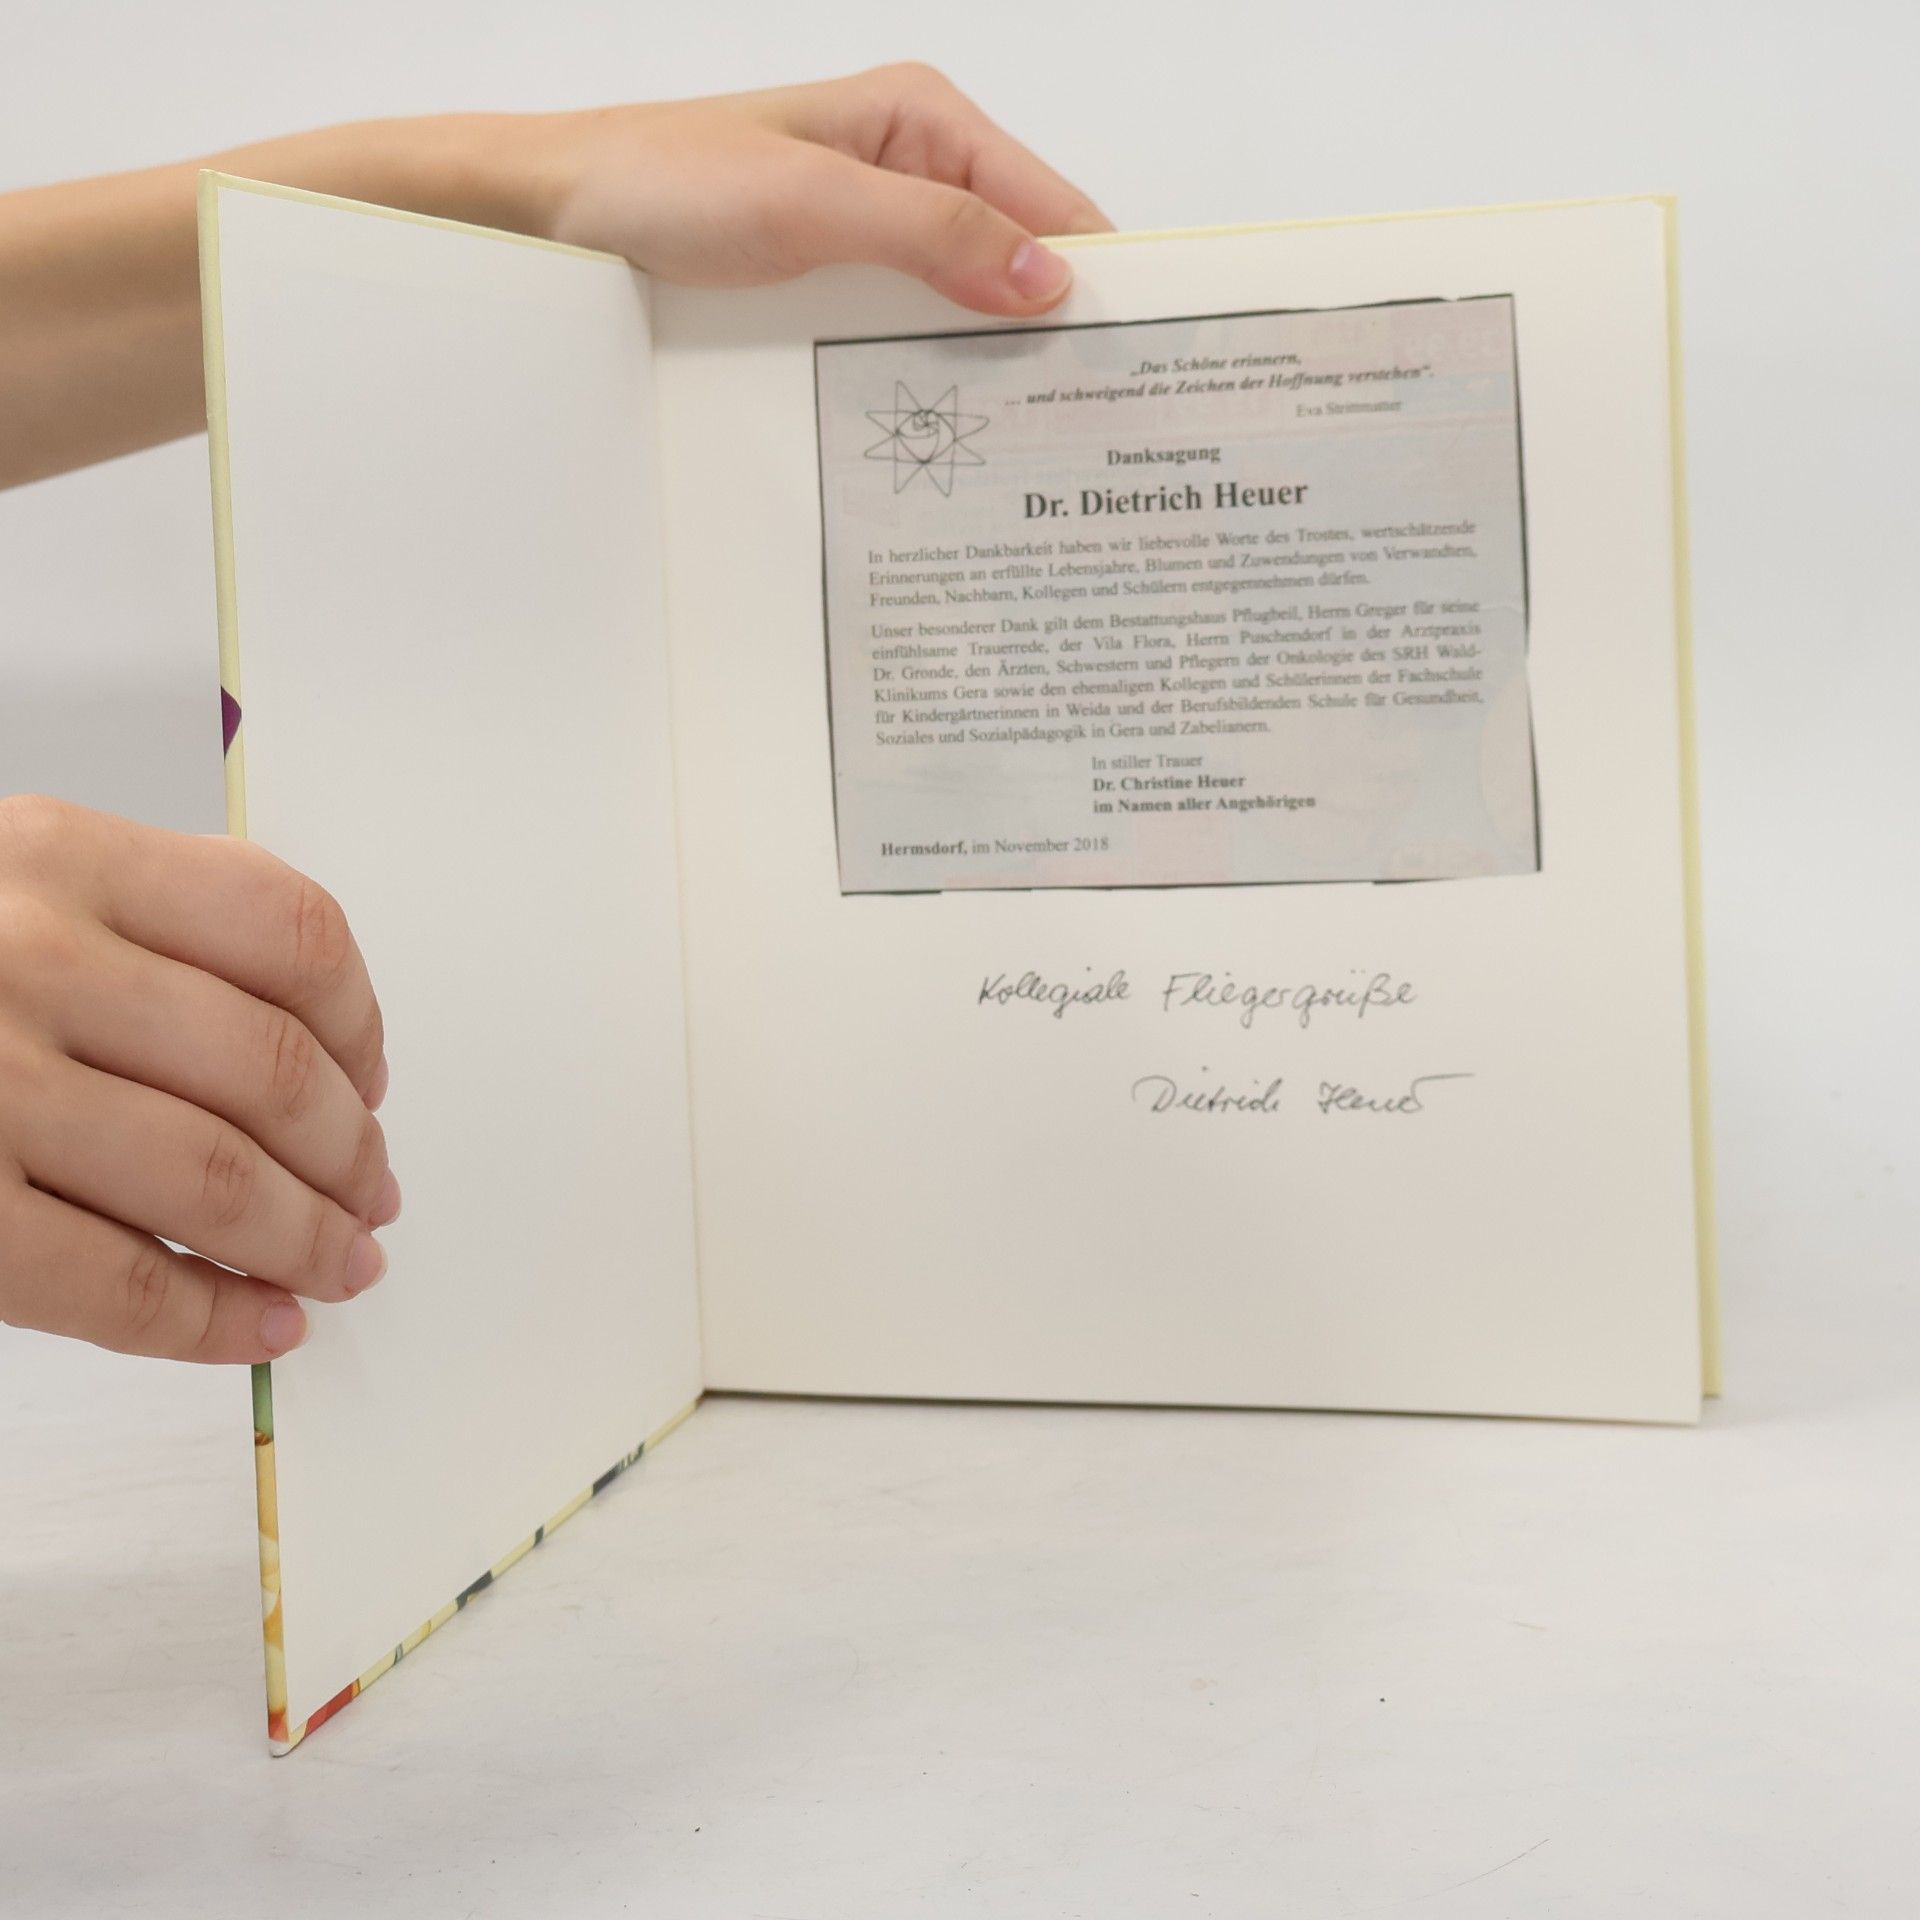 „Das Schöne erinnern,
... und schweigend die Zeichen der Hoffnung verstehen“.
Eva Strittmatter
Danksagung
Dr. Dietrich Heuer
In herzlicher Dankbarkeit haben wir liebevolle Worte des Trostes, wertschätzende
Erinnerungen an erfüllte Lebensjahre, Blumen und Zuwendungen von Verwandten,
Freunden, Nachbarn, Kollegen und Schülern entgegennehmen dürfen.
Unser besonderer Dank gilt dem Bestattungshaus Pflugbeil, Herrn Greger für seine
einfühlsame Trauerrede, der Vila Flora, Herrn Puschendorf in der Arztpraxis
Dr. Gronde, den Ärzten, Schwestern und Pflegern der Onkologie des SRH Wald-
Klinikums Gera sowie den ehemaligen Kollegen und Schülerinnen der Fachschule
für Kindergärtnerinnen in Weida und der Berufsbildenden Schule für Gesundheit,
Soziales und Sozialpädagogik in Gera und Zabelianern.
In stiller Trauer
Dr. Christine Heuer
im Namen aller Angehörigen
Hermsdorf, im November 2018
Kollegiale Fliegergrüße
Dietrich Heuer